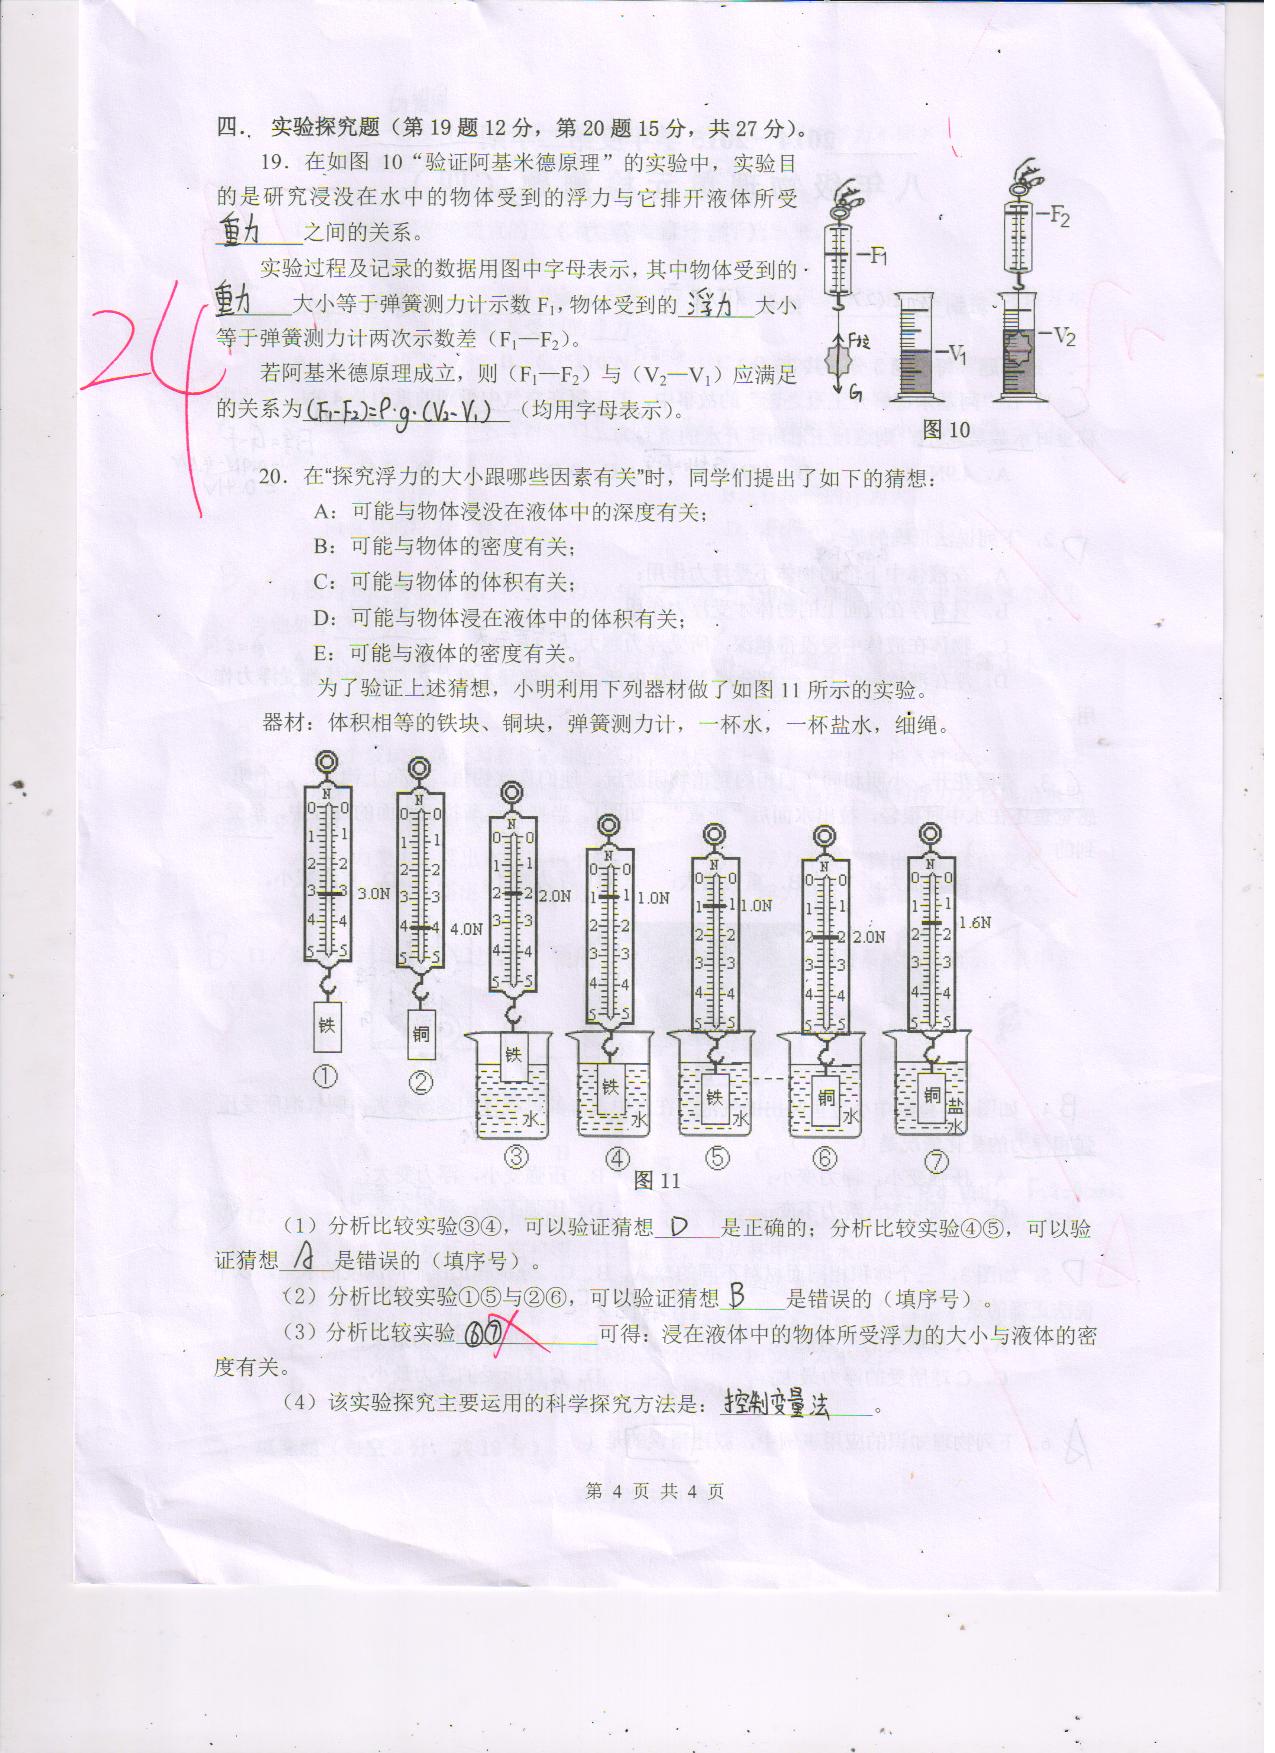 四．实验探究题（第19题12分，第20题15分，共27分）。
19．在如图 10“验证阿基米德原理”的实验中，实验目
的是研究浸没在水中的物体受到的浮力与它排开液体所受
重力之间的关系。
实验过程及记录的数据用图中字母表示，其中物体受到的
重力大小等于弹簧测力计示数 F₁，物体受到的浮力大小
等于弹簧测力计两次示数差（F₁—F₂）。
若阿基米德原理成立，则（F₁—F₂）与（V₂—V₁）应满足
的关系为(F₁-F₂)=ρ·g·(V₂-V₁)（均用字母表示）。
F₁
F拉
G
V₁
F₂
V₂
图 10
24
20．在“探究浮力的大小跟哪些因素有关”时，同学们提出了如下的猜想：
A：可能与物体浸没在液体中的深度有关；
B：可能与物体的密度有关；
C：可能与物体的体积有关；
D：可能与物体浸在液体中的体积有关；
E：可能与液体的密度有关。
为了验证上述猜想，小明利用下列器材做了如图 11 所示的实验。
器材：体积相等的铁块、铜块，弹簧测力计，一杯水，一杯盐水，细绳。
N N N N N N N
0 0 0 0 0 0 0 0 0 0 0 0 0 0
1 1 1 1 1 1 1 1 1 1 1 1 1 1
2 2 2 2 2 2 2 2 2 2 2 2 2 2
3 3 3 3 3 3 3 3 3 3 3 3 3 3
4 4 4 4 4 4 4 4 4 4 4 4 4 4
5 5 5 5 5 5 5 5 5 5 5 5 5 5
3.0N 4.0N 2.0N 1.0N 1.0N 2.0N 1.6N
铁 铜 铁 铁 铁 铜 铜
水 水 水 水 盐水
① ② ③ ④ ⑤ ⑥ ⑦
图 11
（1）分析比较实验③④，可以验证猜想 D 是正确的；分析比较实验④⑤，可以验
证猜想 A 是错误的（填序号）。
（2）分析比较实验①⑤与②⑥，可以验证猜想 B 是错误的（填序号）。
（3）分析比较实验 ⑥⑦ 可得：浸在液体中的物体所受浮力的大小与液体的密
度有关。
（4）该实验探究主要运用的科学探究方法是：控制变量法。
第 4 页 共 4 页